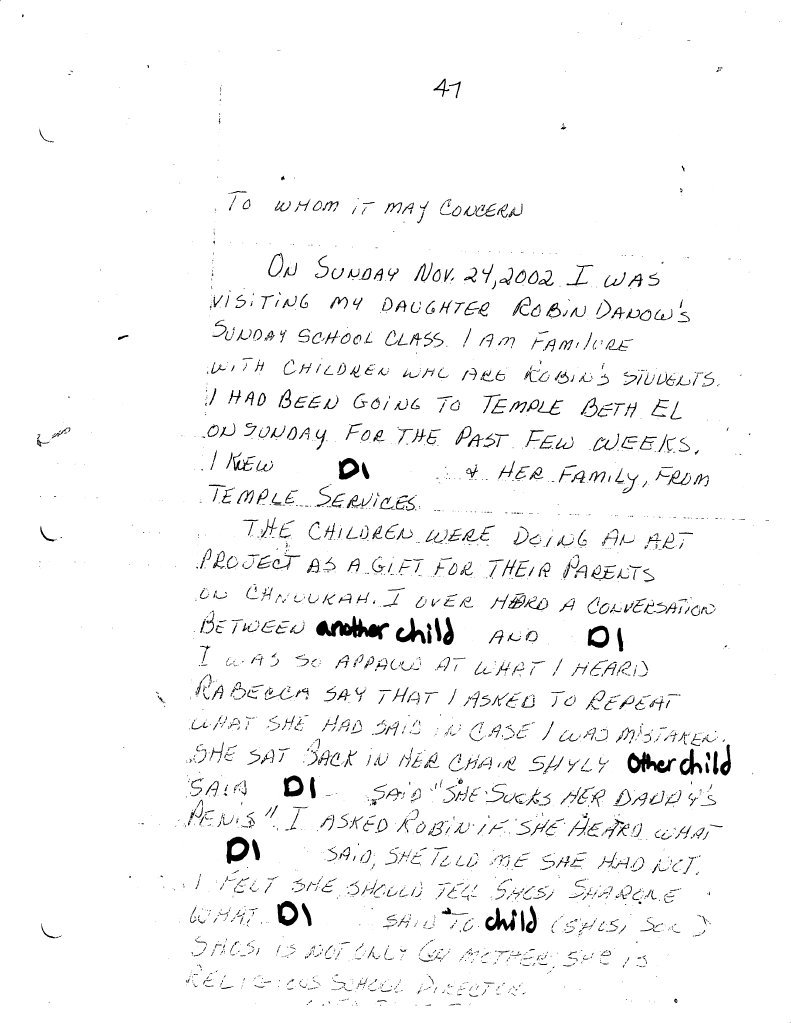 47
TO WHOM IT MAY CONCERN
ON SUNDAY NOV. 24, 2002 I WAS
VISITING MY DAUGHTER ROBIN DANOW'S
SUNDAY SCHOOL CLASS. I AM FAMILURE
WITH CHILDREN WHO ARE ROBIN'S STUDENTS.
I HAD BEEN GOING TO TEMPLE BETH EL
ON SUNDAY FOR THE PAST FEW WEEKS.
I KNEW D1 & HER FAMILY, FROM
TEMPLE SERVICES.
THE CHILDREN WERE DOING AN ART
PROJECT AS A GIFT FOR THEIR PARENTS
ON CHNUUKAH. I OVER HEARD A CONVERSATION
BETWEEN another child AND D1
I WAS SO APPALLED AT WHAT I HEARD
RABECCA SAY THAT I ASKED TO REPEAT
WHAT SHE HAD SAID IN CASE I WAS MISTAKEN.
SHE SAT BACK IN HER CHAIR SHYLY Other child
SAID D1 SAID "SHE SUCKS HER DADDY'S
PENIS". I ASKED ROBIN IF SHE HEARD WHAT
D1 SAID, SHE TOLD ME SHE HAD NOT.
I FELT SHE SHOULD TELL SHOSI SHARONE
WHAT D1 SAID TO child (SHOSI SON)
SHOSI IS NOT ONLY MOTHER, SHE IS
RELIGIOUS SCHOOL DIRECTOR.